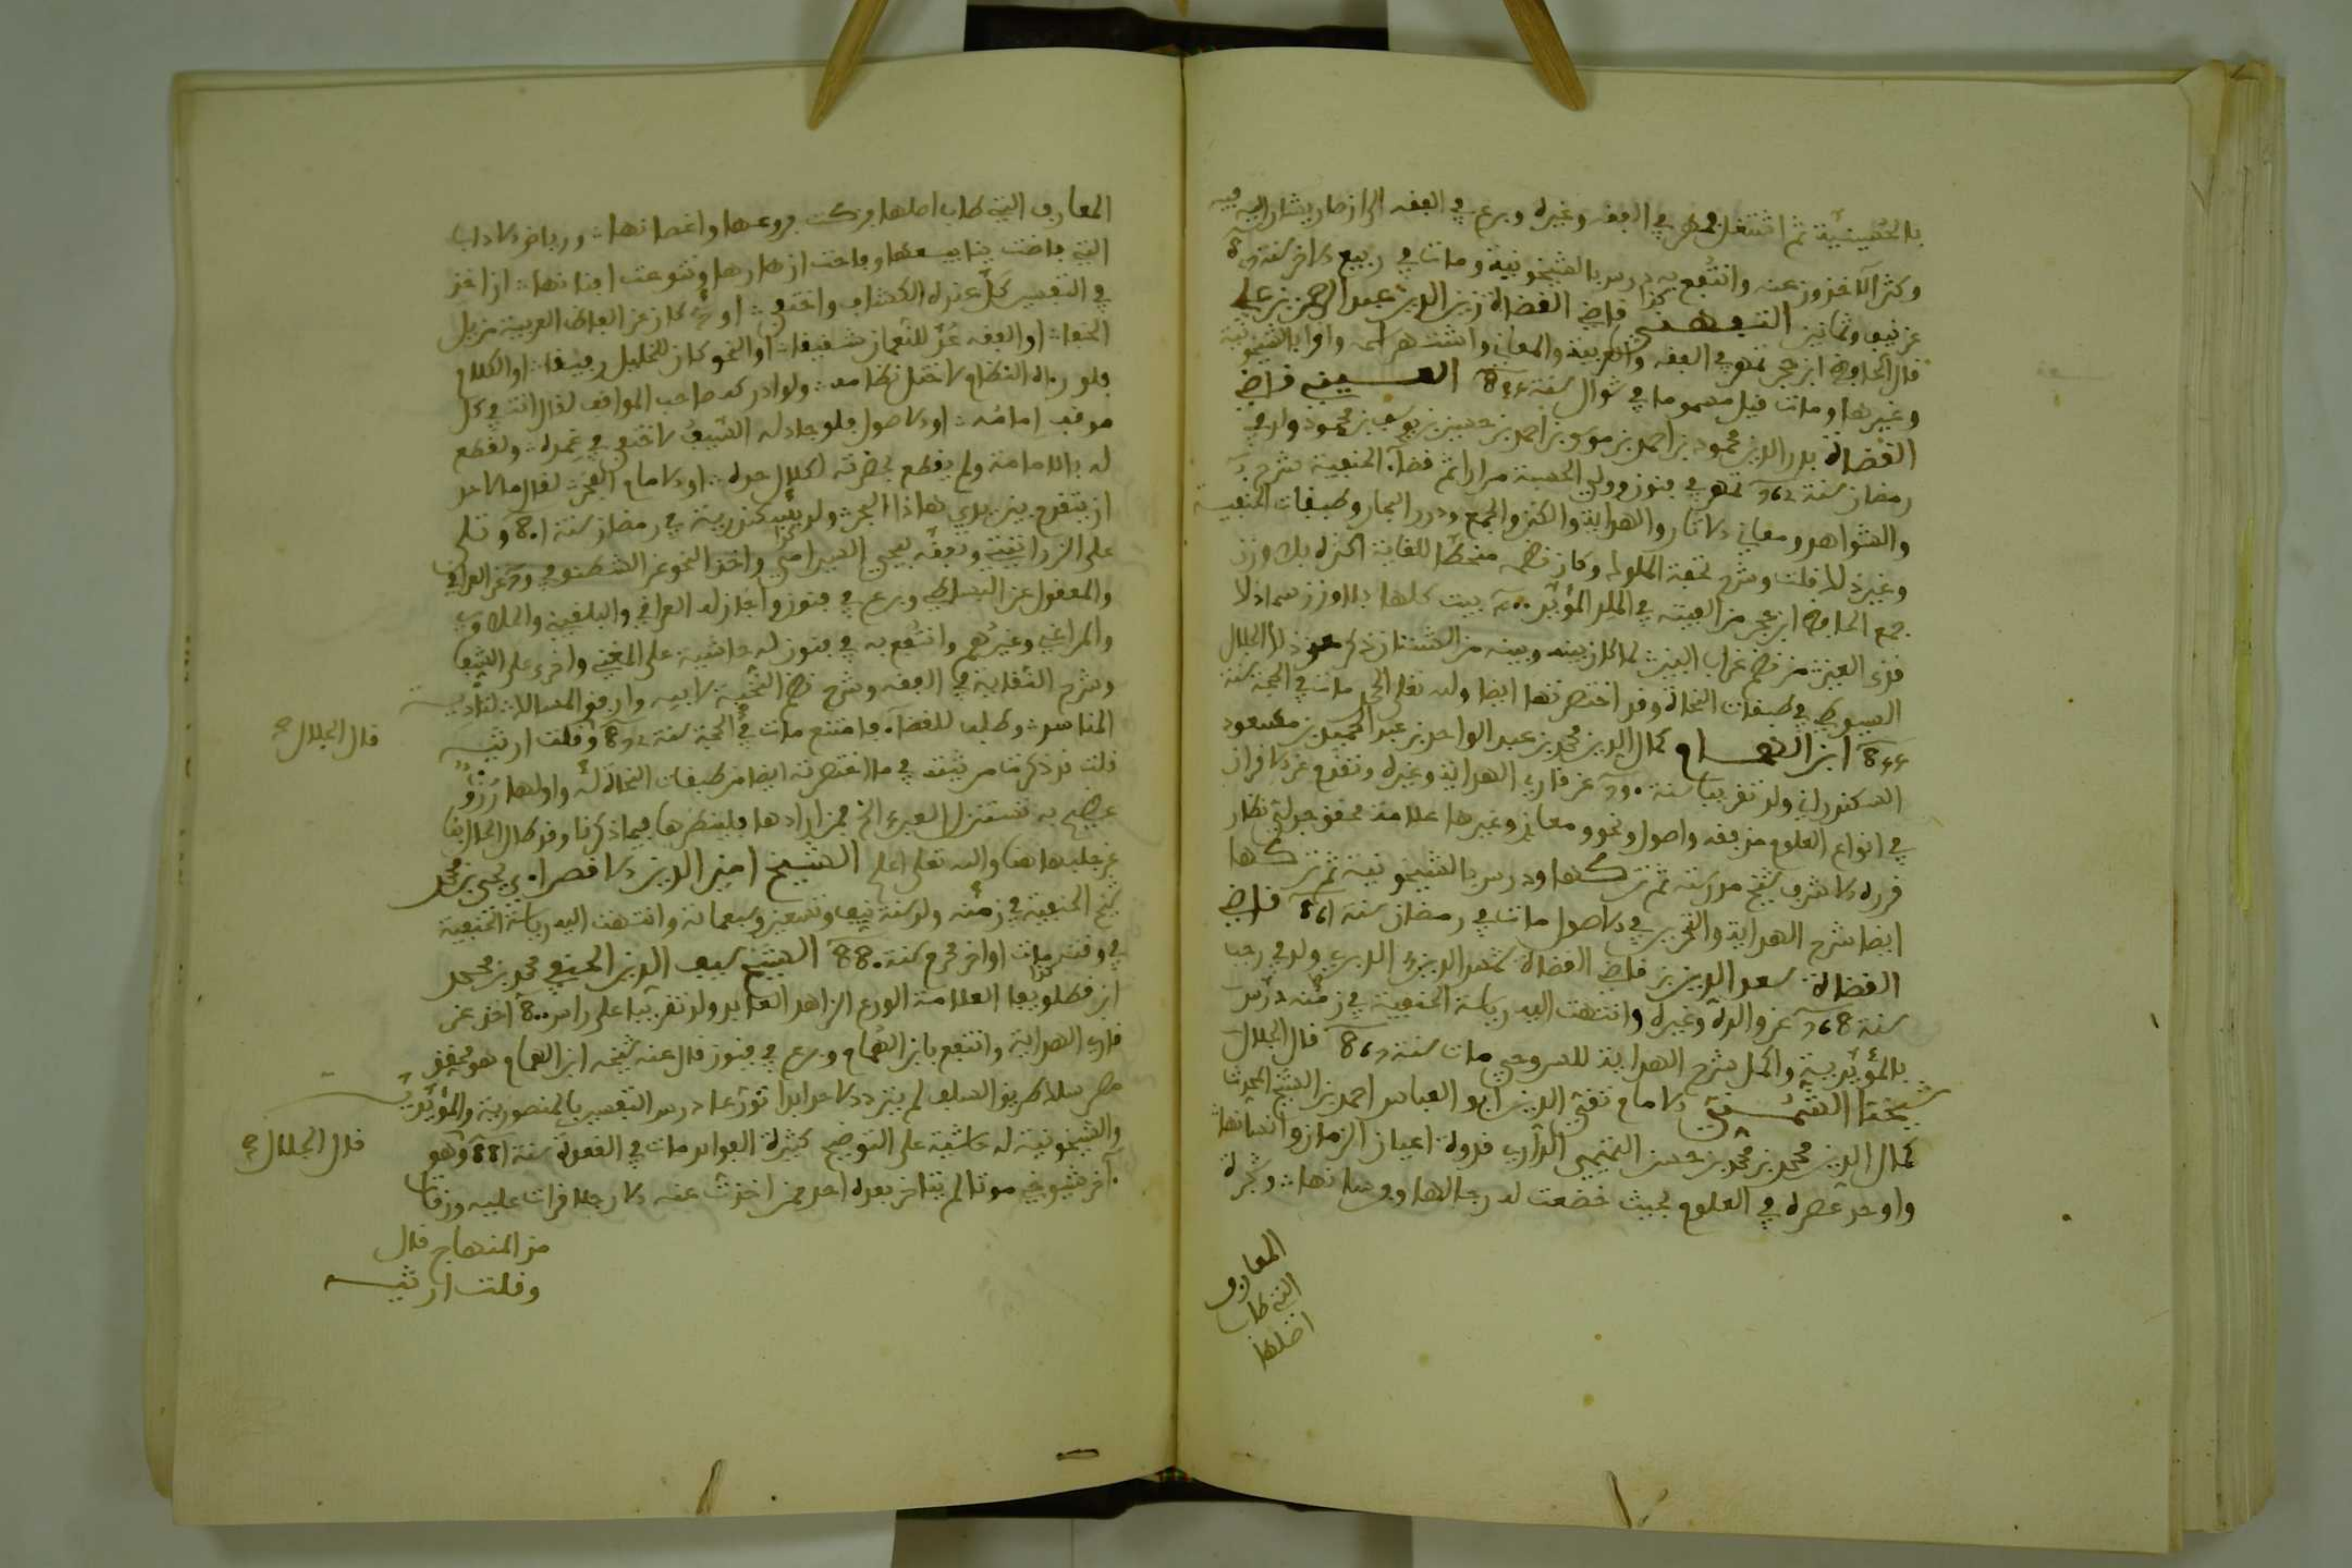 بالحسينية ثم اشتغل بمصر في الفقه وغيره وبرع في الفقه الى ان صار يشار اليه فيه
وكثر الآخذون عنه وانتفع به درس بالشيخونية ومات في ربيع الاخر سنة
عن نيف وثمانين التفهني كذا قاضي القضاة زين الدين عبد الرحمن بن علي
قال الحافظ ابن حجر مهر في الفقه والعربية والمعاني واشتهر اسمه بالشيخونية
وغيرها ومات قيل مسموما في شوال سنة العيني قاضي
القضاة بدر الدين محمود بن احمد بن موسى بن احمد بن حسين بن يوسف بن محمود ولد في
رمضان سنة مهر في فنون وولي الحسبة مرارا ثم قضاء الحنفية شرح
والشواهد ومعاني الاثار والهداية والكنز والمجمع ودرر البحار وطبقات الحنفية
وغير ذلك قلت وشرح تحفة الملوك وكان نظمه منحطا للغاية اكثره بلا وزن
جمع الحافظ ابن حجر من ابيته في الملك المؤيد بيت كلها بلا وزن سماه
قذى العين من نظم غراب البين لما كان بينه وبينه من الشنئان ذكر ذلك الجلال
السيوطي في طبقات النحاة وقد اختصرتها ايضا ولله تعلى الحمد مات في الحجة سنة
ابن الهمام كمال الدين محمد بن عبد الواحد بن عبد الحميد بن مسعود
السكندراني ولد تقريبا سنة عن قارئ الهداية وغيره وتقدم عن الاقران
في انواع العلوم من فقه واصول ونحو ومعاني وغيرها علامة محقق جدلي نظار
قرره الاشرف شيخ مدرسته ثم تركها ودرس بالشيخونية ثم تركها
ايضا شرح الهداية والتحرير في الاصول مات في رمضان سنة 861 قاضي
القضاة سعد الدين بن قاضي القضاة شمس الدين الديري ولد في رجب
سنة عن والده وغيره وانتهت اليه رياسة الحنفية في زمنه درس
بالمؤيدية واكمل شرح الهداية للسروجي مات سنة قال الجلال
شيخنا الشمني الامام تقي الدين ابو العباس احمد بن الشيخ المحدث
كمال الدين محمد بن محمد بن حسن التميمي الداري قدوة اعيان الزمان
واوحد عصره في العلوم بحيث خضعت له رجالها وفرسانها وشجرة
المعارف
التي طاب
اصلها
المعارف التي طاب اصلها فزكت فروعها واغصانها ورياض الاداب
التي فاضت ينابيعها وفاحت ازهارها وتنوعت افنانها ان اخذ
في التفسير عنده الكشاف واختفى او كان عن الفاظ العربية مزيل
الخفا او الفقه عد للنعمان شقيقا او النحو كان للخليل رفيقا او الكلام
فلو رءاه النظام لاختل نظامه ولو ادركه صاحب المواقف لقال انت في كل
موقف امامه او الاصول فلو جادله السيف لاختفى في غمده ولقطع
له بالامامة ولم يقطع بحضرته لكلال حده او الامام الفخر لقال مالاحد
ان يتقدم بين يدي هاذا البحر ولد بسكندرية في رمضان سنة 801 وتلى
على الزراتيتي وتفقه بيحيى السيرامي كذا واخذ النحو عن الشطنوفي عن العراقي
والمعقول عن البساطي وبرع في فنون واجاز له العراقي والبلقيني والحلاوي
والمراغي وغيرهم وانتفع به في فنون له حاشية على المغني واخرى على الشفا
وشرح النقاية في الفقه وشرح نظم النخبة لابيه وارفق المسالك لتأدية
المناسك وطلب للقضاء فامتنع مات في الحجة سنة وقلت ارثيه
قال الجلال
قلت قد ذكرت مرثيته في ما اختصرته ايضا من طبقات النحاة له واولها رزء
عظيم به تستنزل العبر الخ فمن ارادها فلينظرها فيما ذكرنا وقد طال الجلال
عن جلبها هنا والله تعلى اعلم الشيخ امين الدين الاقصراءي يحيى بن محمد
شيخ الحنفية في زمنه ولد سنة نيف وتسعين وسبعمائة وانتهت اليه رياسة الحنفية
في وقته مات اواخر محرم سنة 880 الشيخ سيف الدين الحنفي محمد بن محمد
ابن قطلوبغا كذا العلامة الورع الزاهد العابد ولد تقريبا على راس 800 اخذ عن
قارئ الهداية وانتفع بابن الهمام وبرع في فنون قال عنه شيخه ابن الهمام هو محقق
مصر سلك طريق السلف لم يتردد لاحد ابدا تورعا درس التفسير بالمنصورية والمؤيدية
والشيخونية له حاشية على التوضيح كثيرة الفوائد مات في القعدة سنة 881 وهو
قال الجلال
آخر شيوخي موتا لم يتاخر بعده احد ممن اخذت عنه الا رجلا قرات عليه ورقات
من المنهاج قال
وقلت ارثيه